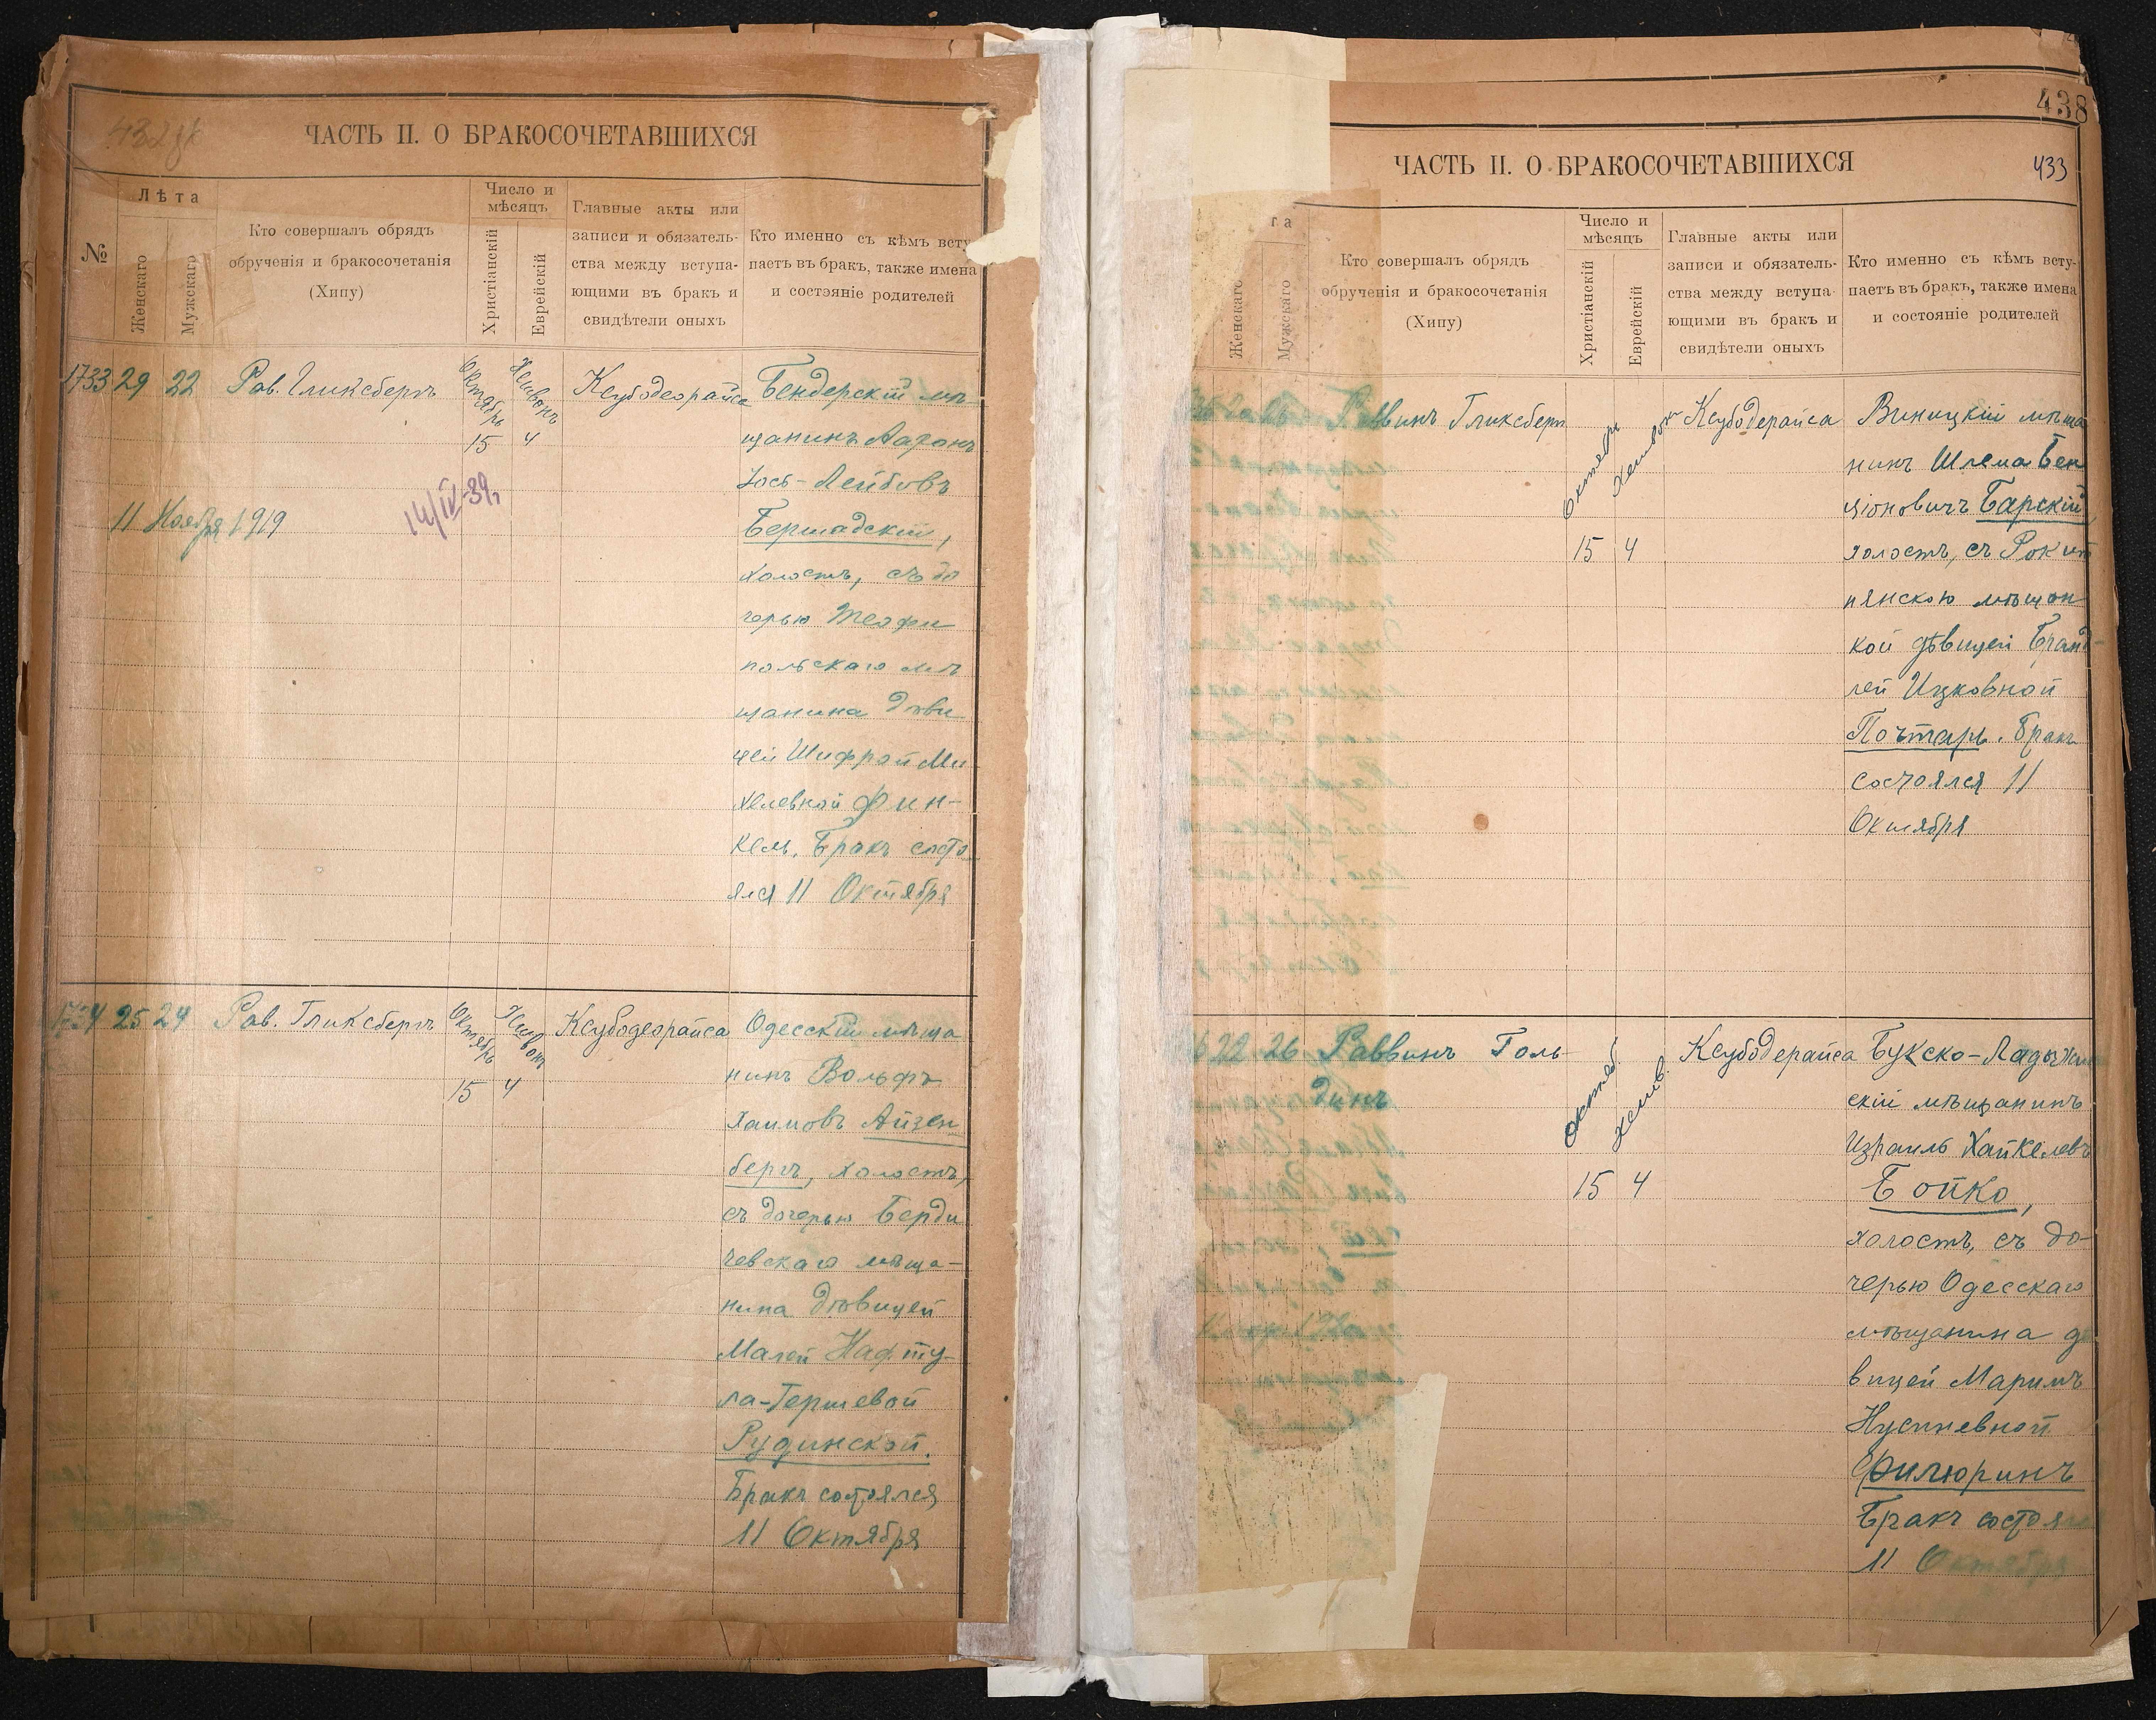 ЧАСТЬ II. О БРАКОСОЧЕТАВШИХСЯ
№
Лѣта
Женскаго
Мужскаго
Кто совершалъ обрядъ
обрученія и бракосочетанія
(Хипу)
Число и
мѣсяцъ
Христіанскій
Еврейскій
Главные акты или
записи и обязатель-
ства между вступа-
ющими въ бракъ и
свидѣтели оныхъ
Кто именно съ кѣмъ всту
паетъ въ бракъ, также имена
и состояніе родителей
1733 29 22 Рав. Гликсбергъ
Октябрь 15
Хешвонъ 4
Ксубодеорайса
Бендерскій мѣ
щанинъ Ааронъ
Іось-Лейбовъ
Бершадскій,
холостъ, съ до
черью Теофи
польскаго мѣ
щанина дѣви
цей Шифрой Ми
хелевной Фин-
кель. Бракъ состо
ялся 11 Октября
11 Ноября 1919
14/IV-39г
1734 25 24 Рав. Гликсбергъ
Октябрь 15
Хешвонъ 4
Ксубодеорайса
Одесскій мѣща
нинъ Вольфъ
Хаимовъ Айзен
бергъ, холостъ,
съ дочерью Берди
чевскаго мѣща-
нина дѣвицей
Малей Нафту-
ла-Гершевой
Рудинской.
Бракъ состоялся
11 Октября
438
433
ЧАСТЬ II. О БРАКОСОЧЕТАВШИХСЯ
та
Женскаго
Мужскаго
Кто совершалъ обрядъ
обрученія и бракосочетанія
(Хипу)
Число и
мѣсяцъ
Христіанскій
Еврейскій
Главные акты или
записи и обязатель-
ства между вступа-
ющими въ бракъ и
свидѣтели оныхъ
Кто именно съ кѣмъ всту-
паетъ въ бракъ, также имена
и состояніе родителей
Раввинъ Гликсберг
Октябрь 15
Хешвонъ 4
Ксубодерайса
Виницкій мѣща
нинъ Шлема Бен
ціоновичъ Барскій,
холостъ, съ Рокит
нянскою мѣщан
кой дѣвицей Бранд-
лей Ицковной
Почтарь. Бракъ
состоялся 11
Октября
6 22 26 Раввинъ Голь-
динъ
Октяб. 15
Хешв. 4
Ксубодерайса
Букско-Ладыжин
скій мѣщанинъ
Израиль Хайкелевъ
Бойко,
холостъ, съ до-
черью Одесскаго
мѣщанина дѣ
вицей Маримъ
Нусиневной
Филюринъ
Бракъ состоялс
11 Октября